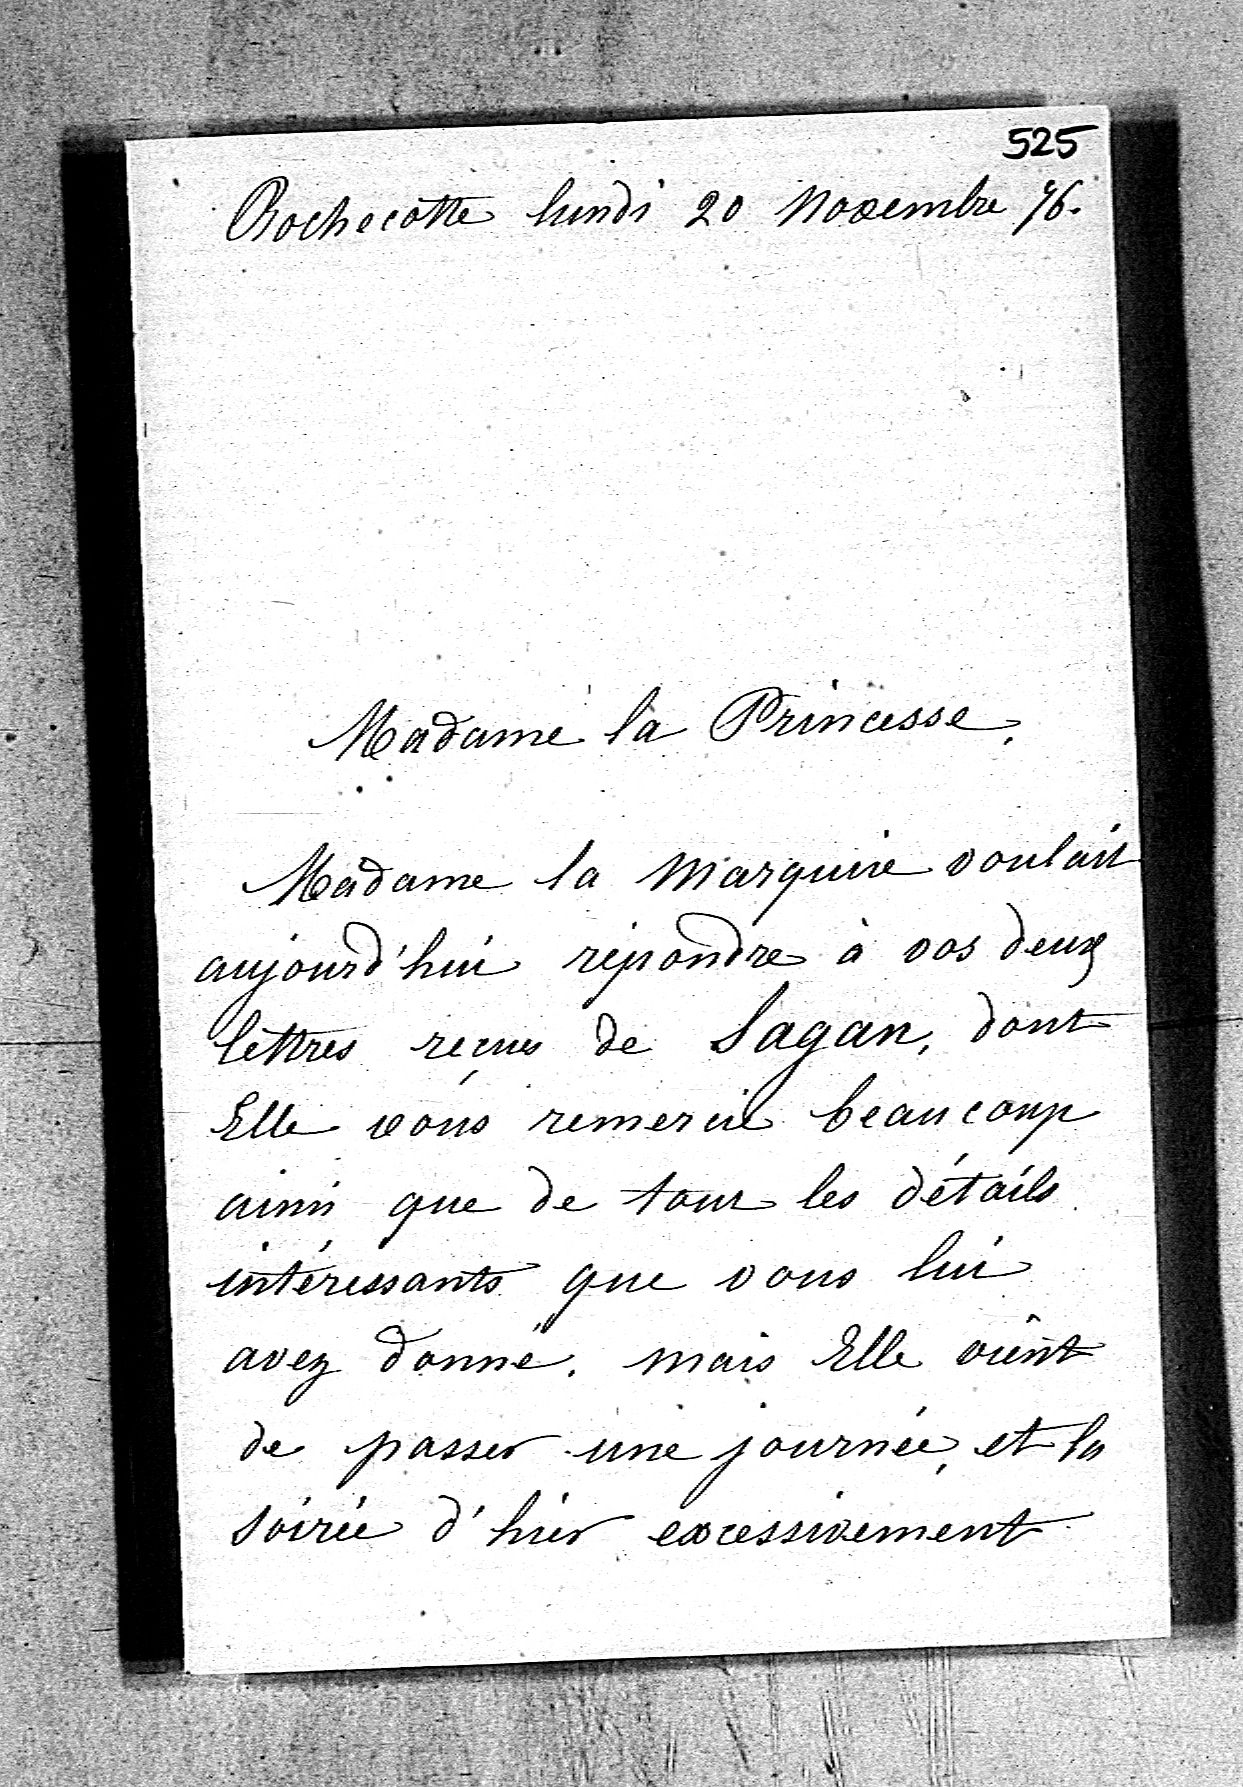 525
Rochecotte lundi 20 Novembre 76.
Madame la Princesse,
Madame la Marquise voulait
aujourd'hui répondre à vos deux
lettres reçues de Sagan, dont
Elle vous remercie beaucoup
ainsi que de tous les détails
intéressants que vous lui
avez donné. mais Elle vient
de passer une journée, et la
soirée d'hier excessivement